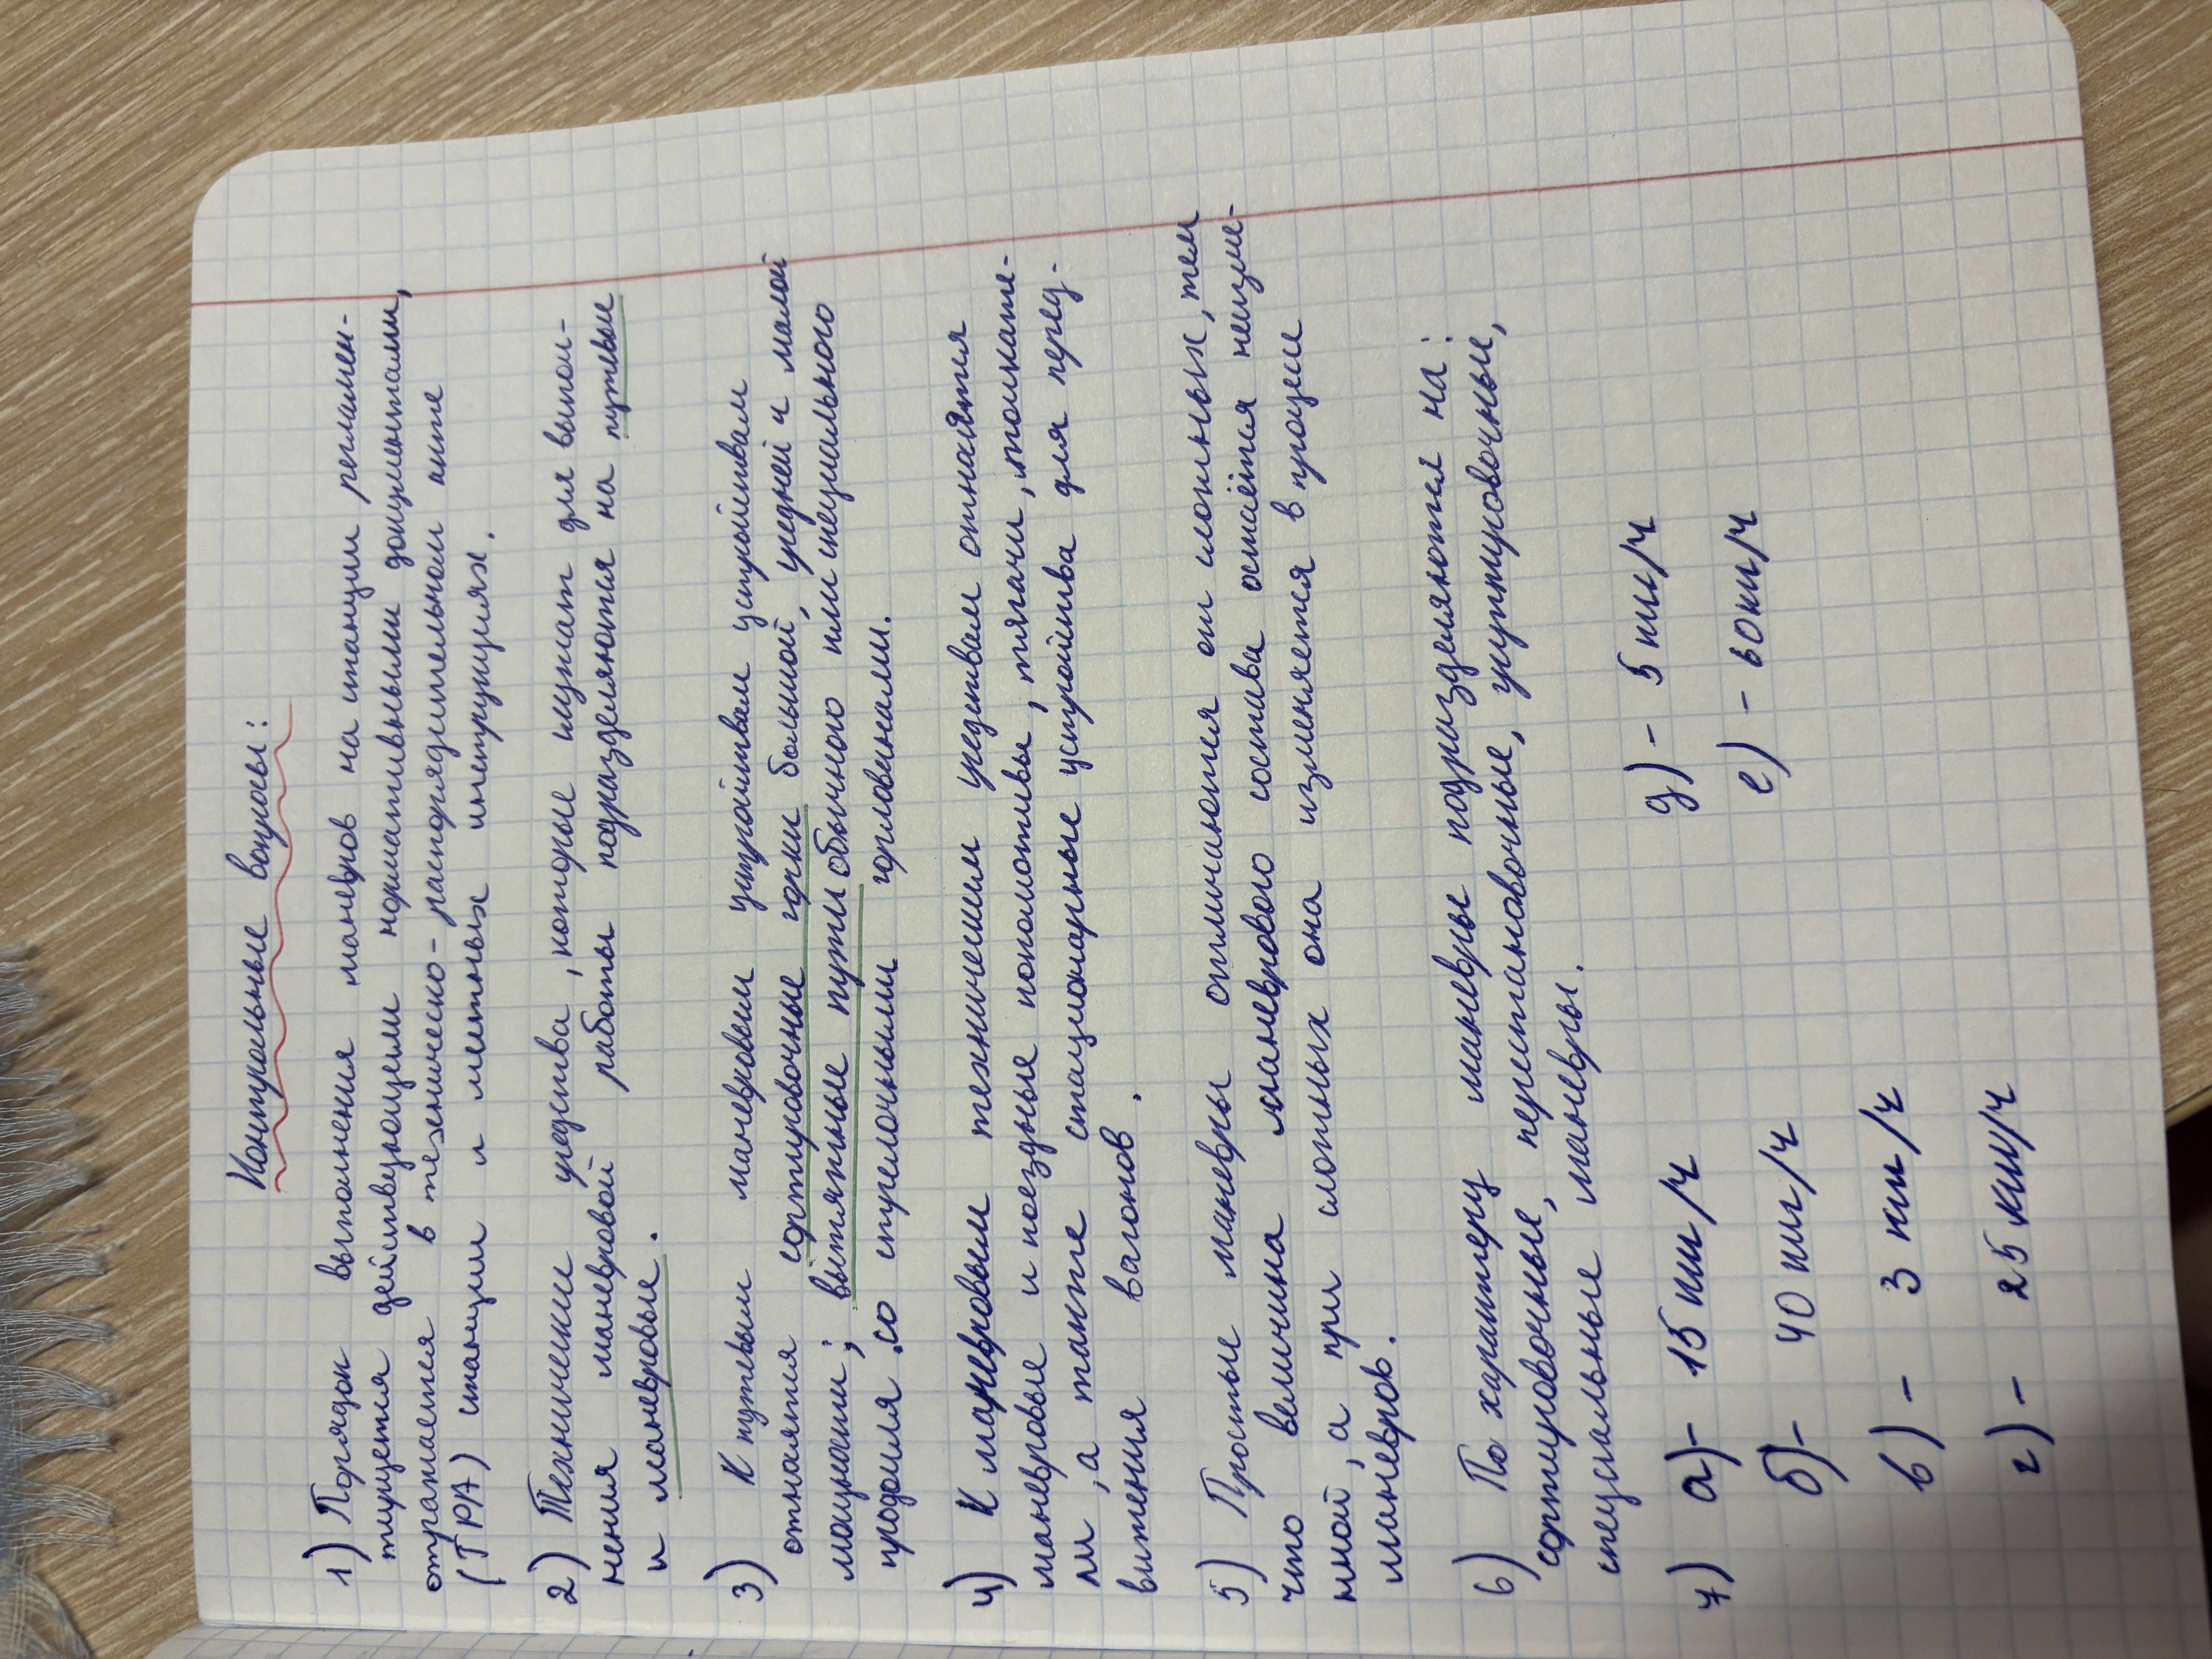 Контрольные вопросы:
1) Порядок выполнения маневров на станции регламен-
тируется действующими нормативными документами,
отражается в техническо-распорядительном акте
(ТРА) станции и местных инструкциях.
2) Технические средства, которые служат для выпол-
нения маневровой работы подразделяются на путевые
и маневровые.
3) К путевым маневровым устройствам устройствам
относятся сортировочные горки большой, средней и малой
мощности; вытяжные пути обычного или специального
профиля со стрелочными горловинами.
4) К маневровым техническим средствам относятся
маневровые и поездные локомотивы, тягачи, толкате-
ли, а также стационарные устройства для перед-
вижения вагонов.
5) Простые маневры отличаются от сложных, тем
что величина маневрового состава остаётся неизме-
нной, а при сложных она изменяется в процессе
маневров.
6) По характеру маневры подразделяются на:
сортировочные, перестановочные, группировочные,
специальные маневры.
7) а) - 15 км/ч д) - 5 км/ч
б) - 40 км/ч е) - 60км/ч
в) - 3 км/ч
г) - 25 км/ч